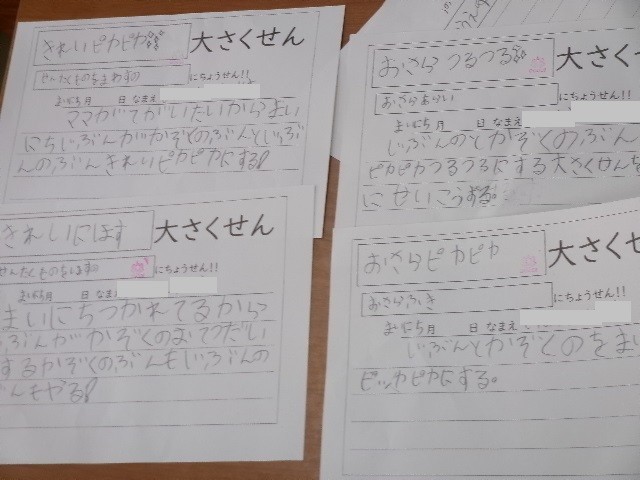 きれいピカピカ 大さくせん
にちょうせん!!
まいにち月 日 なまえ
ママがてがいたいからまい
にちじぶんがかぞくのぶんとじぶ
んのぶんきれいピカピカにする!
おさらつるつる 大さくせ
おさらあらい にちょうせん!!
まいにち月 日 なまえ
じぶんのとかぞくのぶん
ピカピカつるつるにする大さくせんを
にせいこうする。
きれいにほす 大さくせん
せんたくものをほすの にちょうせん!!
まいにち月 日 なまえ
まいにちつかれてるから
ぶんがかぞくのおてつだい
するかぞくのぶんもじぶんの
んもやる!
おさらピカピカ 大さくせ
おさらふき にちょうせん!!
まいにち月 日 なまえ
じぶんとかぞくのをまい
ピッカピカにする。